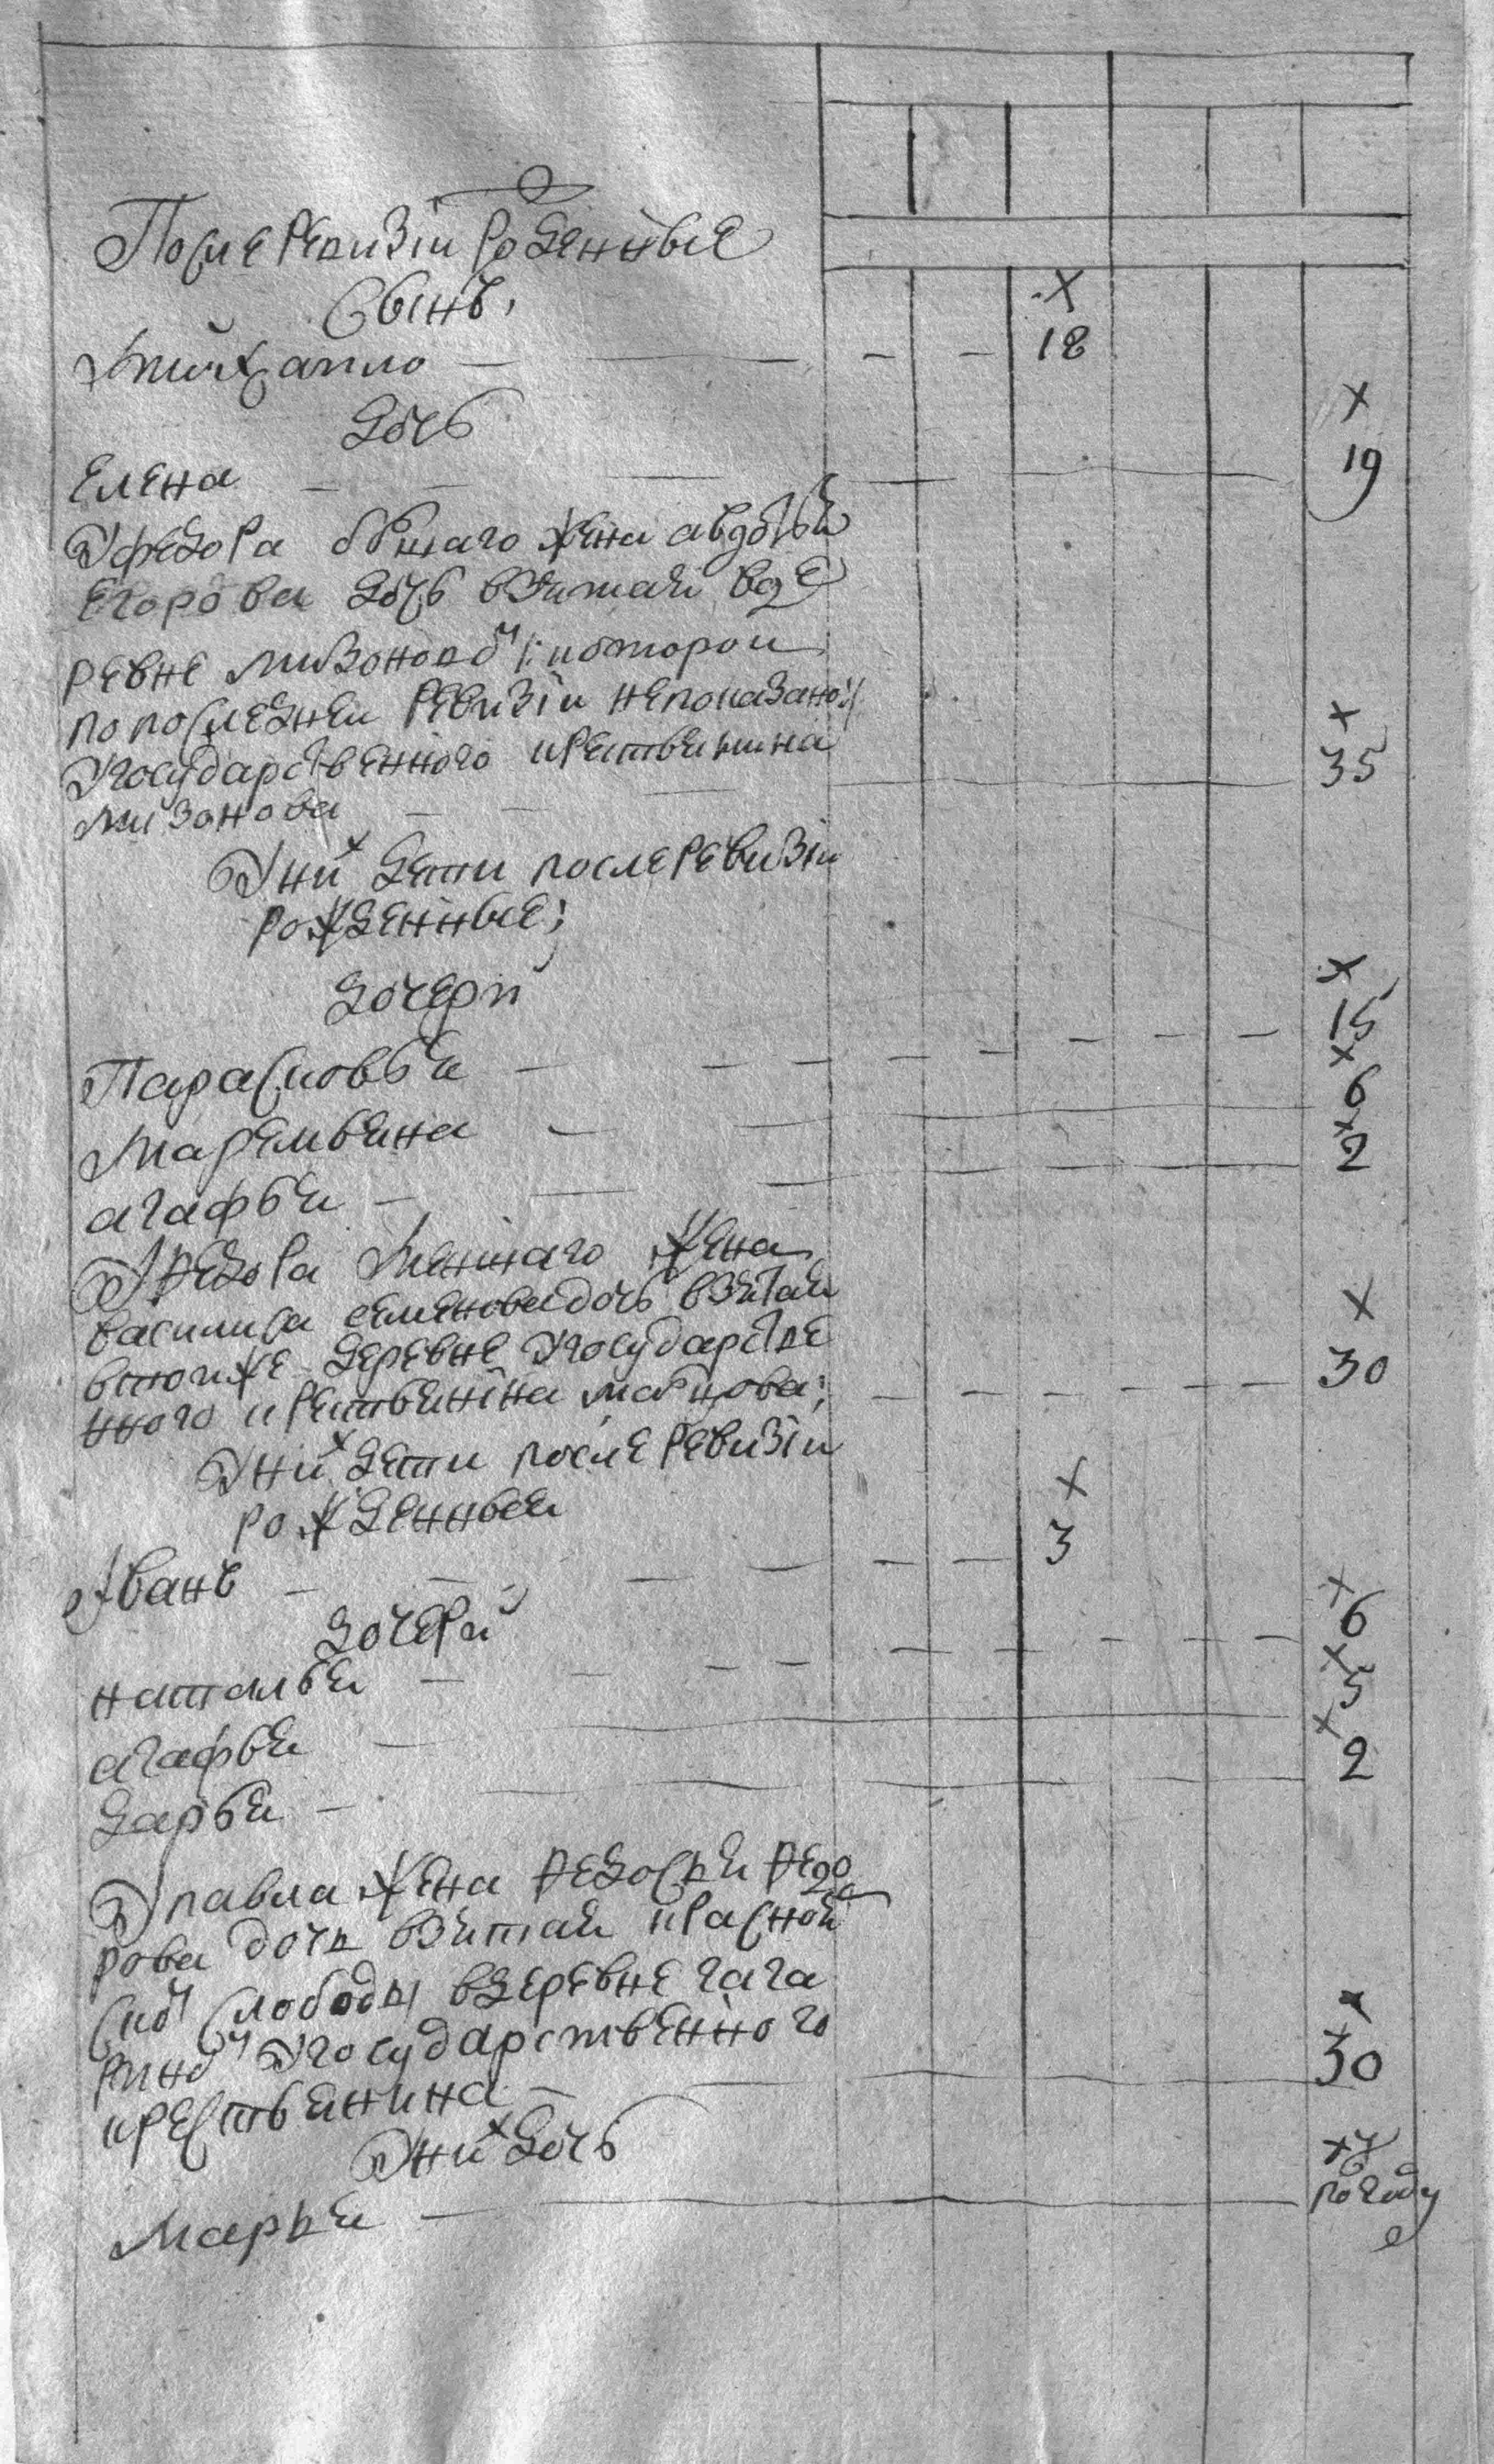 После ревизiи роженные
Сынъ,
Михаило — — — — 18
дочь
Елена — — — 19
У федора болшаго жена авдотья
егорова дочь взятая вде
ревне мизоновой /: которой
по последней ревизiи непоказано :/
У государственного крестьянина
мизонова — — — 35
У них дети после ревизiи
рожденные;
дочери
Парасковья — — — 15
Маремьяна — — — 6
агафья — — — 2
У Федора меншаго жена
василиса семенова дочь взятая
втой же деревне У государстве
нного крестьянина
У них дети после ревизiи
рожденныя — 30
Иванъ — — — 3
дочери
наталья — — — 6
агафья — — — 5
дарья — — — 2
У павла жена Федосья Федо
рова дочь взятая красной
ской слободы вдеревне гага
риной У государственного
крестьянина — — 30
У них дочь
Марья — — по году